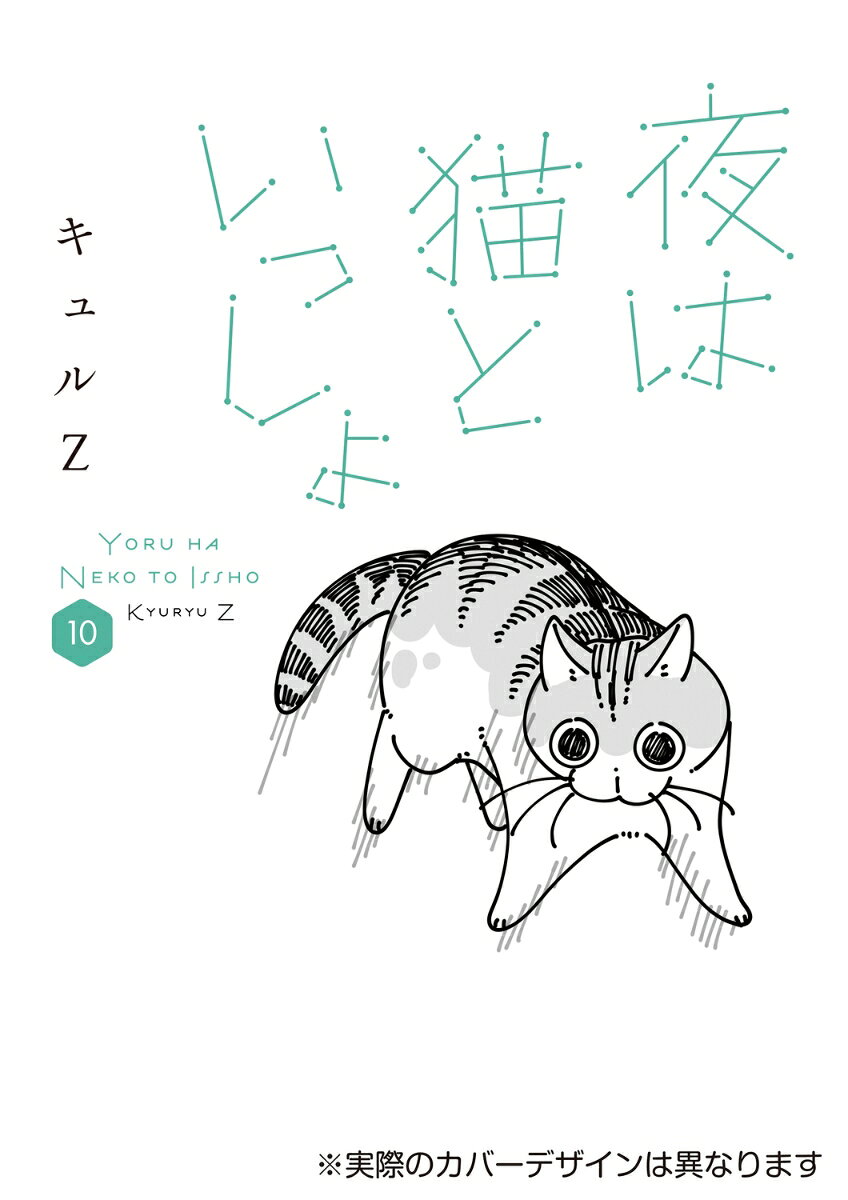 夜は
猫と
いっしょ
キュルZ
YORU HA
NEKO TO ISSHO
KYURYU Z
10
※実際のカバーデザインは異なります